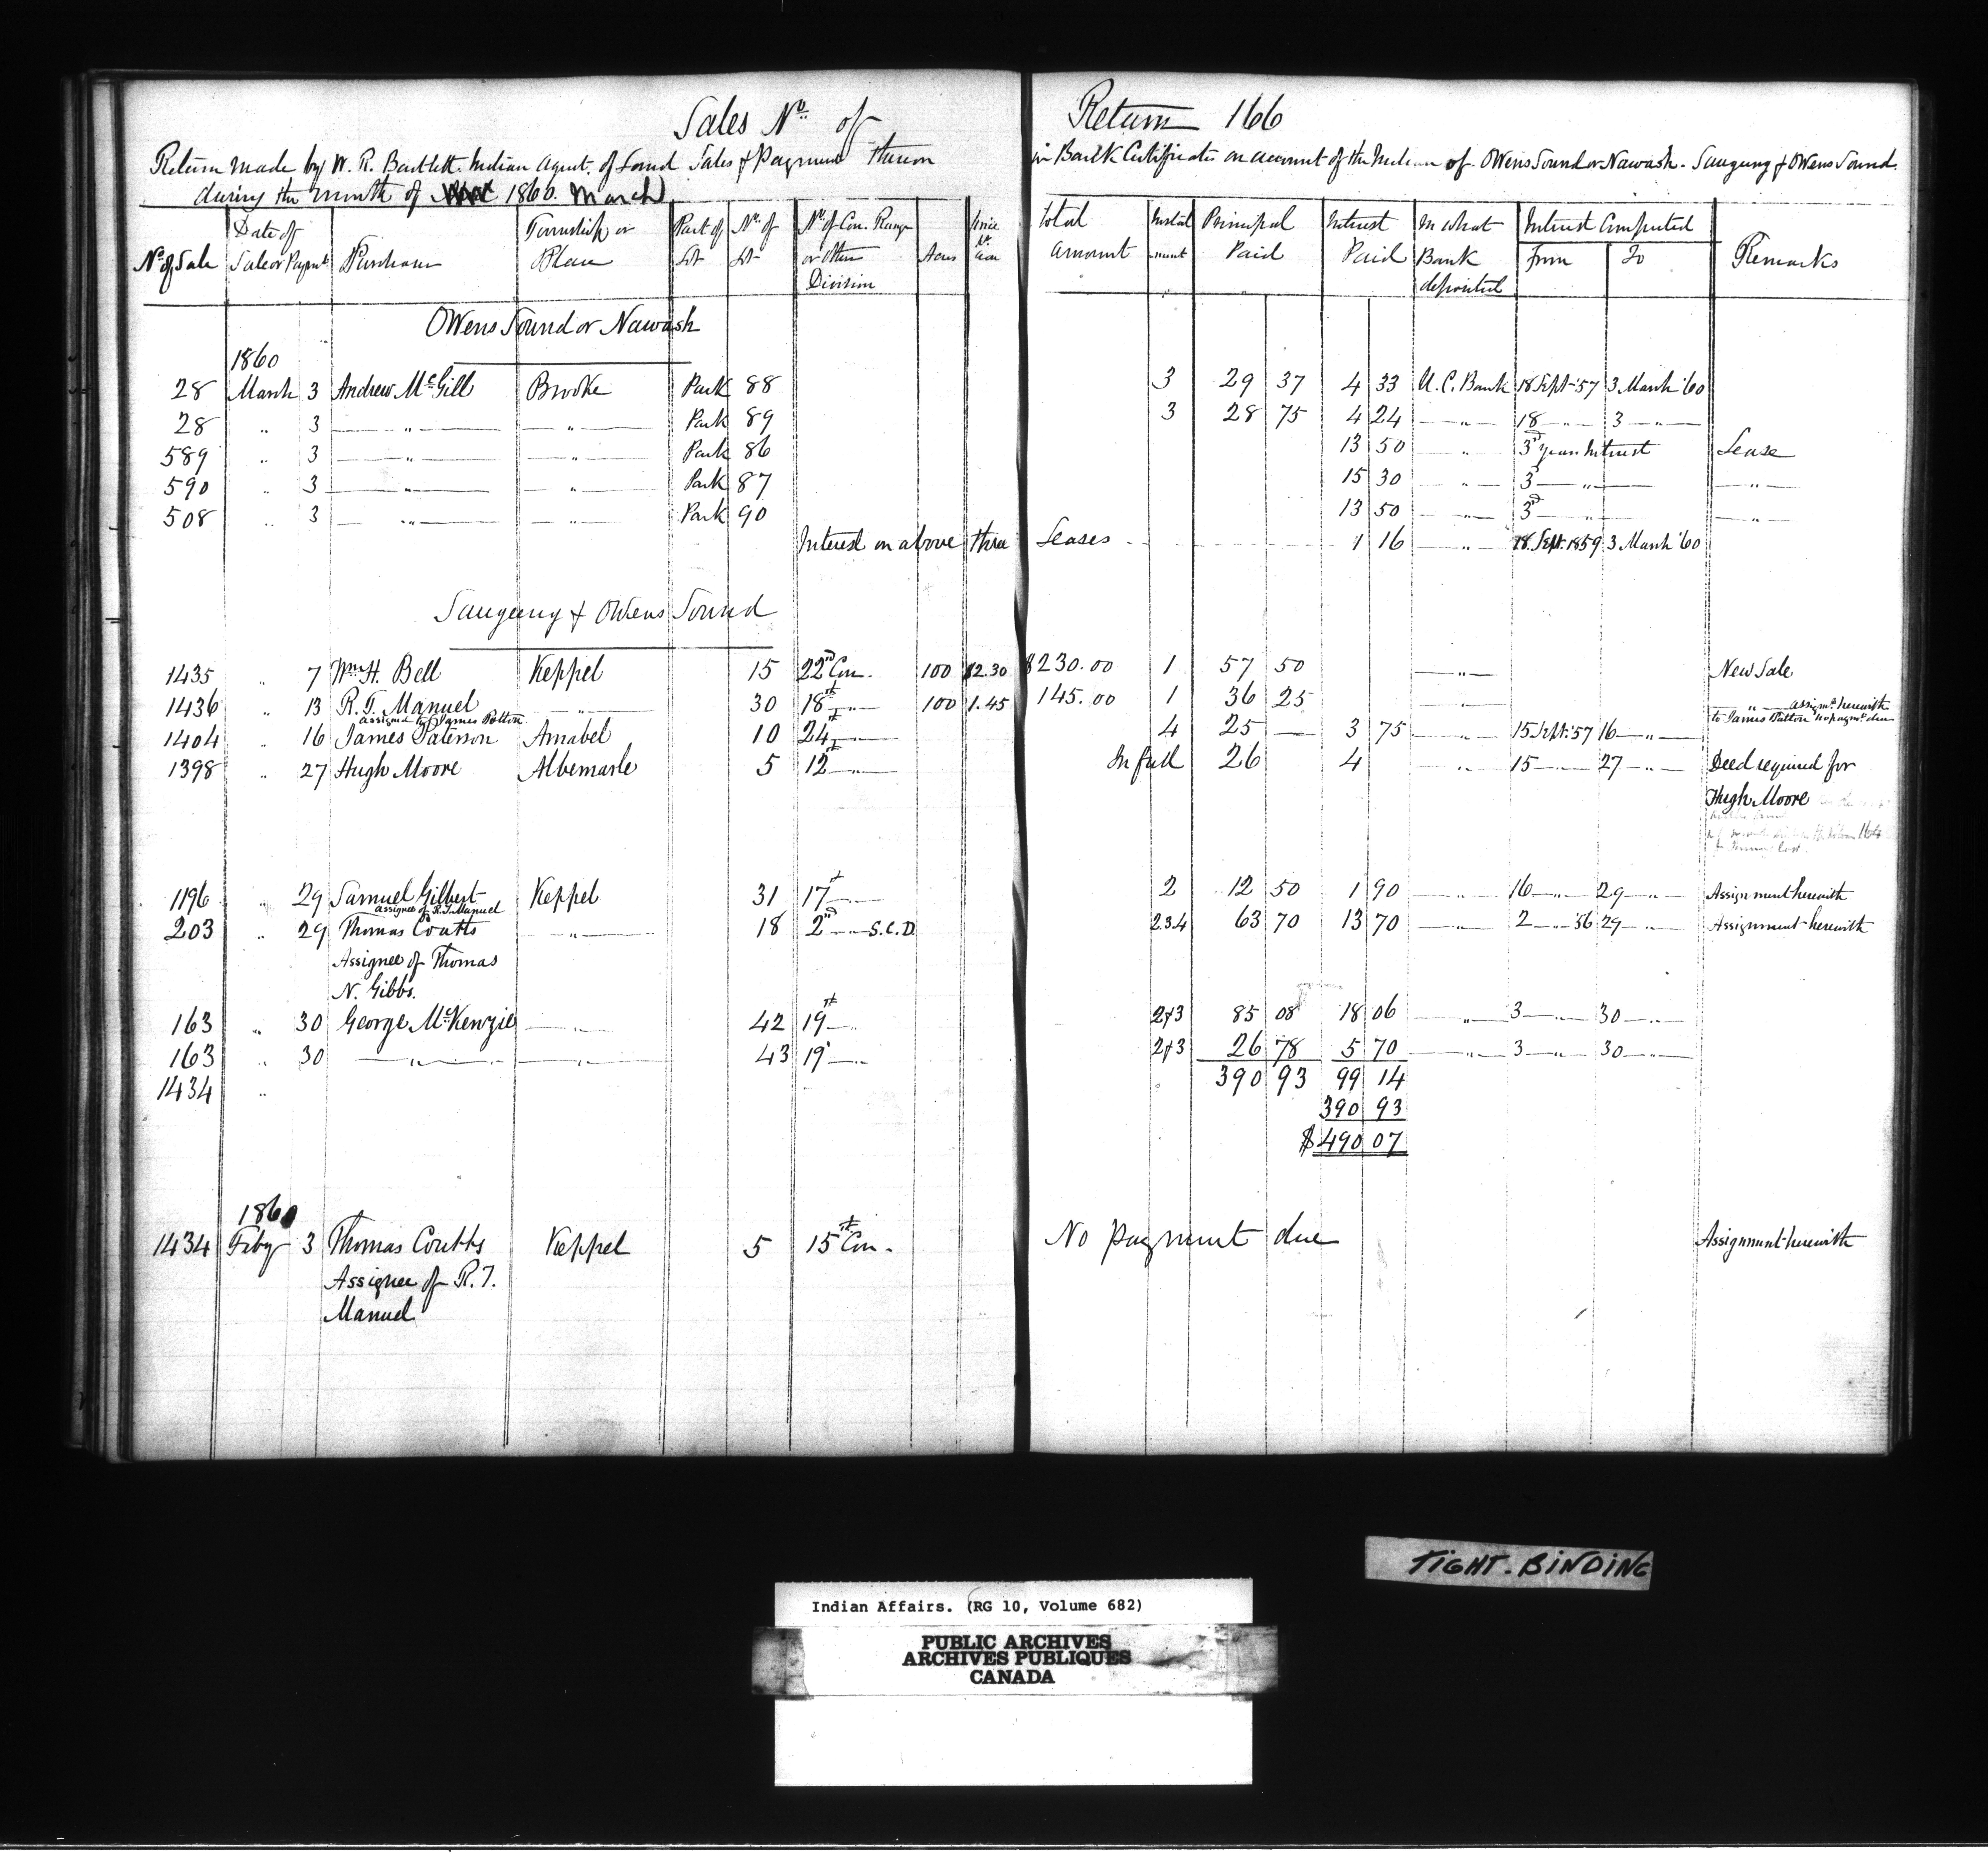 Sales No. of Return 166
Return Made by W. R. Bartlett Indian Agent, of Land Sales & Payment thereon in Bank Certificates on account of the Indians of Owens Sound or Nawash. Saugeeng & Owens Sound.
during the month of 1860. March
No. of Sale | Date of Sale or Paymt | Purchaser | Township or Place | Part of Lot | No. of Lot | No. of Con. Range or Other Division | Acres | Price pr. Acre | Total amount | Instalment | Principal Paid | Interest Paid | In what Bank deposited | Interest Computed From | To | Remarks
Owens Sound or Nawash
1860
28 March 3 Andrew McGill Brooke Park 88 3 29 37 4 33 U.C. Bank 18 Sept '57 3 March '60
28 " 3 " " Park 89 3 28 75 4 24 " 18 " 3 "
589 " 3 " " Park 86 13 50 " 3rd years Interest Lease
590 " 3 " " Park 87 15 30 " 3 " "
508 " 3 " " Park 90 13 50 " 3rd " "
Interest on above three Leases 1 16 " 18 Sept. 1859 3 March '60
Saugeeng & Owens Sound
1435 " 7 Wm H. Bell Keppel 15 22nd Con. 100 $2.30 $230.00 1 57 50 " New Sale
1436 " 13 R. T. Manuel " 30 18th " 100 1.45 145.00 1 36 25 " " assignt. herewith
assigned to James Patton to James Patton no paymt. due
1404 " 16 James Paterson Amabel 10 24th " 4 25 — 3 75 " 15 Sept '57 16 "
1398 " 27 Hugh Moore Albemarle 5 12th " In full 26 4 " 15 " 27 " Deed required for
Hugh Moore
1196 " 29 Samuel Gilbert Keppel 31 17th " 2 12 50 1 90 " 16 " 29 " Assignment herewith
assignee of R. T. Manuel
203 " 29 Thomas Coutts " 18 2nd " S.C.D. 2.3.4 63 70 13 70 " 2 " '56 29 " Assignment herewith
Assignee of Thomas
N. Gibbs.
163 " 30 George McKenzie " 42 19th " 2&3 85 08 18 06 " 3 " 30 "
163 " 30 " " 43 19 " 2&3 26 78 5 70 " 3 " 30 "
1434 " 390 93 99 14
390 93
$490 07
1860
1434 Feby 3 Thomas Coutts Keppel 5 15th Con. No payment due Assignment herewith
Assignee of R. T.
Manuel
TIGHT. BINDING
Indian Affairs. (RG 10, Volume 682)
PUBLIC ARCHIVES
ARCHIVES PUBLIQUES
CANADA